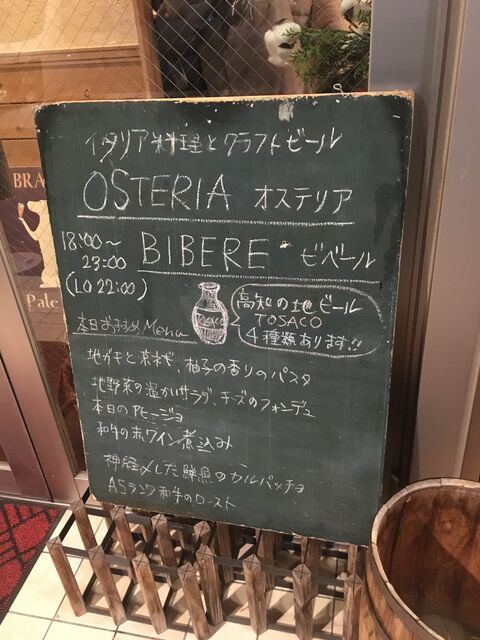 イタリア料理とクラフトビール
OSTERIA オステリア
BIBERE ビベール
18:00〜
23:00
(LO 22:00)
TOSACO
高知の地ビール
TOSACO
4種類あります!!
本日おすすめMenu
地ガキと京ネギ、柚子の香りのパスタ
地野菜の温かいサラダ、チーズのフォンデュ
本日のアヒージョ
和牛の赤ワイン煮込み
神経〆した鮮魚のカルパッチョ
A5ランク和牛のロースト
BRA
Pale